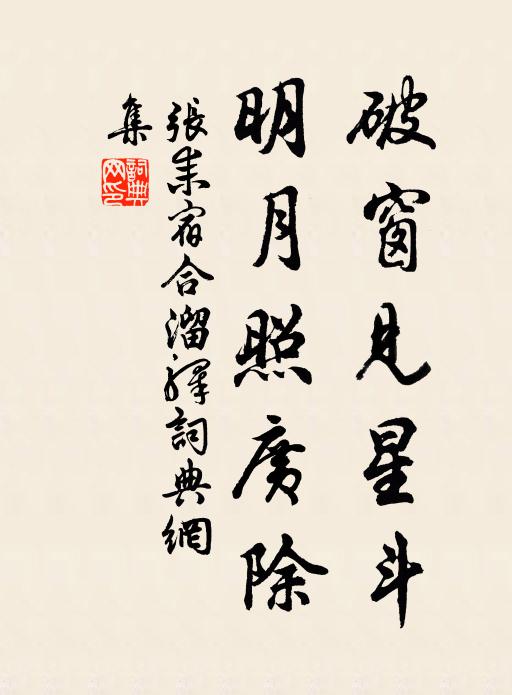 破窗見星斗
明月照廣除
張耒宿合溜驛詞典網
集
詞典
網印